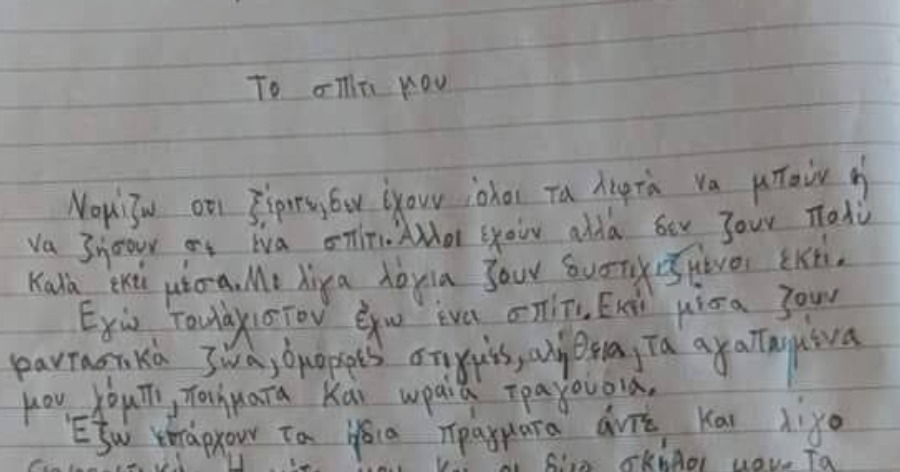 Το σπίτι μου
Νομίζω οτι ξέρετε, δεν έχουν όλοι τα λεφτά να μπούν ή
να ζήσουν σε ένα σπίτι. Άλλοι έχούν αλλά δεν ζουν πολύ
καλά εκεί μέσα. Με λίγα λόγια ζουν δυστιχιζμένοι εκεί.
Εγώ τουλάχιστον έχω ένα σπίτι. Εκεί μέσα ζουν
φανταστικά ζώα, όμορφές στιγμές, αλήθεια, τα αγαπημένα
μου χόμπι, ποιήματα και ωραία τραγουδια.
Έξω υπάρχουν τα ίδια πράγματα άντέ και λίγο
μου και οι δύο σκήλοι μου. Τα